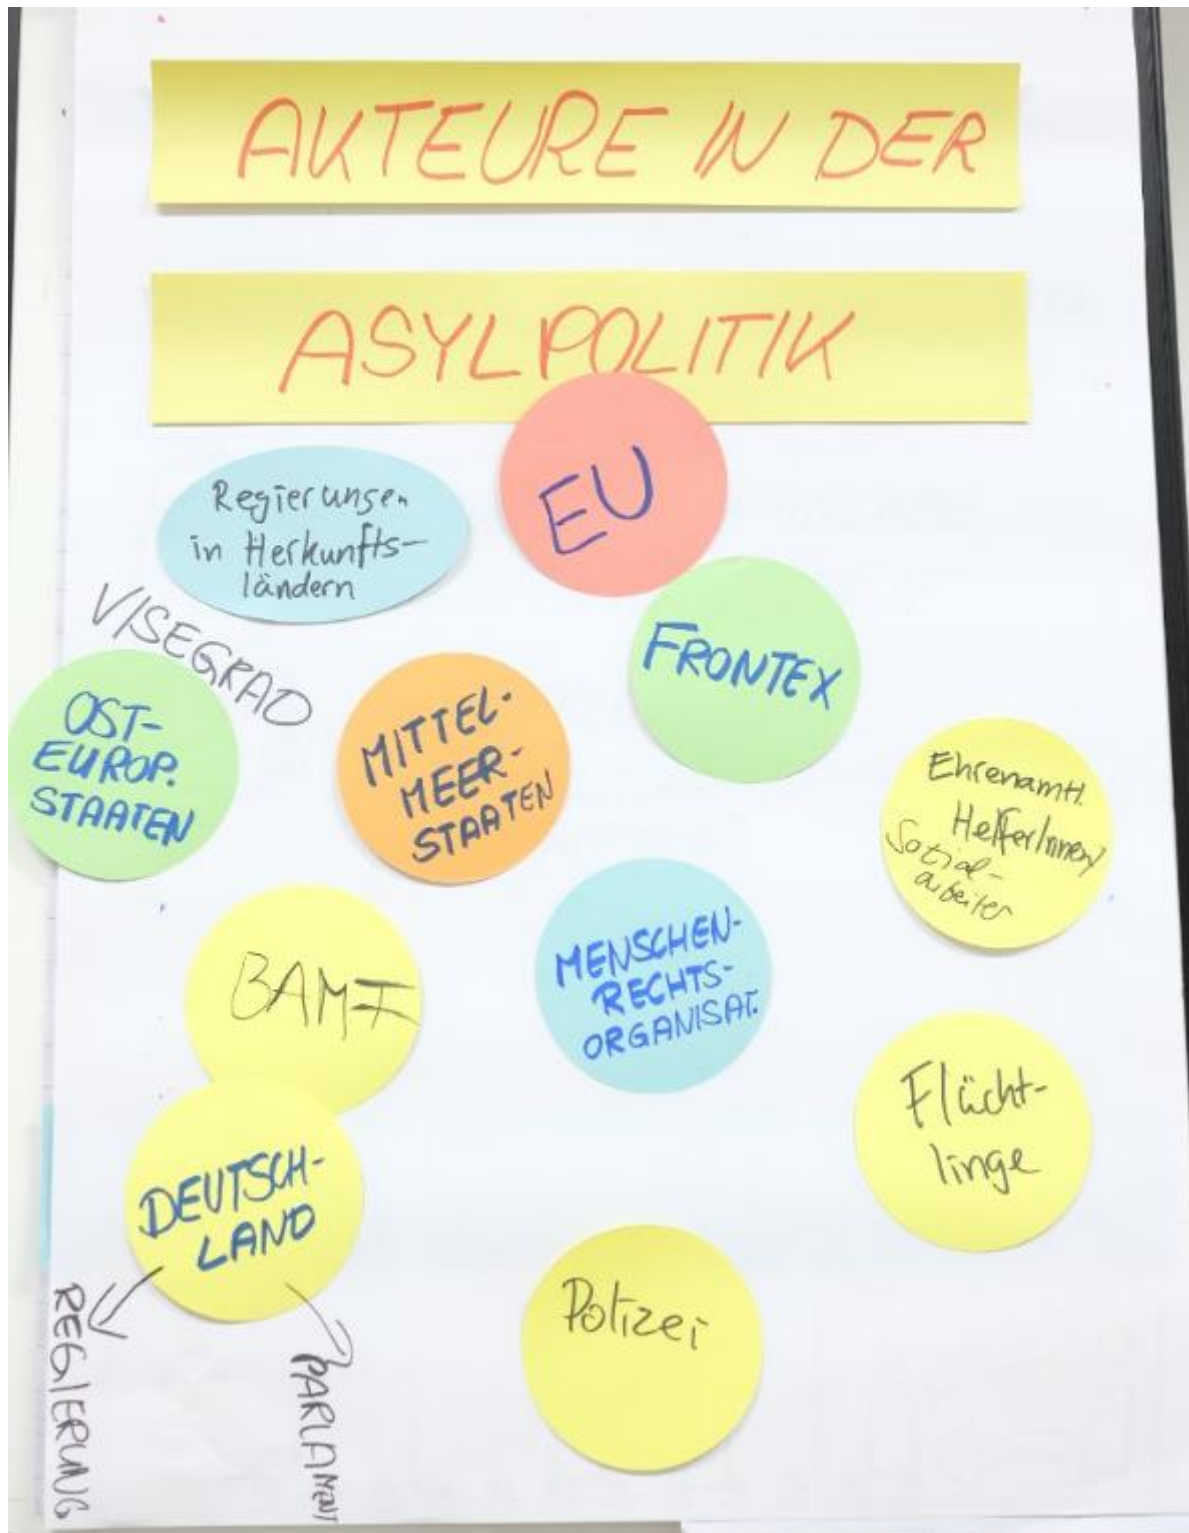 AKTEURE IN DER
ASYLPOLITIK
EU
Regierungen
in Herkunfts-
ländern
VISEGRAD
FRONTEX
OST-
EUROP.
STAATEN
MITTEL-
MEER-
STAATEN
Ehrenamtl.
HelferInnen/
Sozial-
arbeiter
BAMF
MENSCHEN-
RECHTS-
ORGANISAT.
Flücht-
linge
DEUTSCH-
LAND
Polizei
REGIERUNG
PARLAMENT